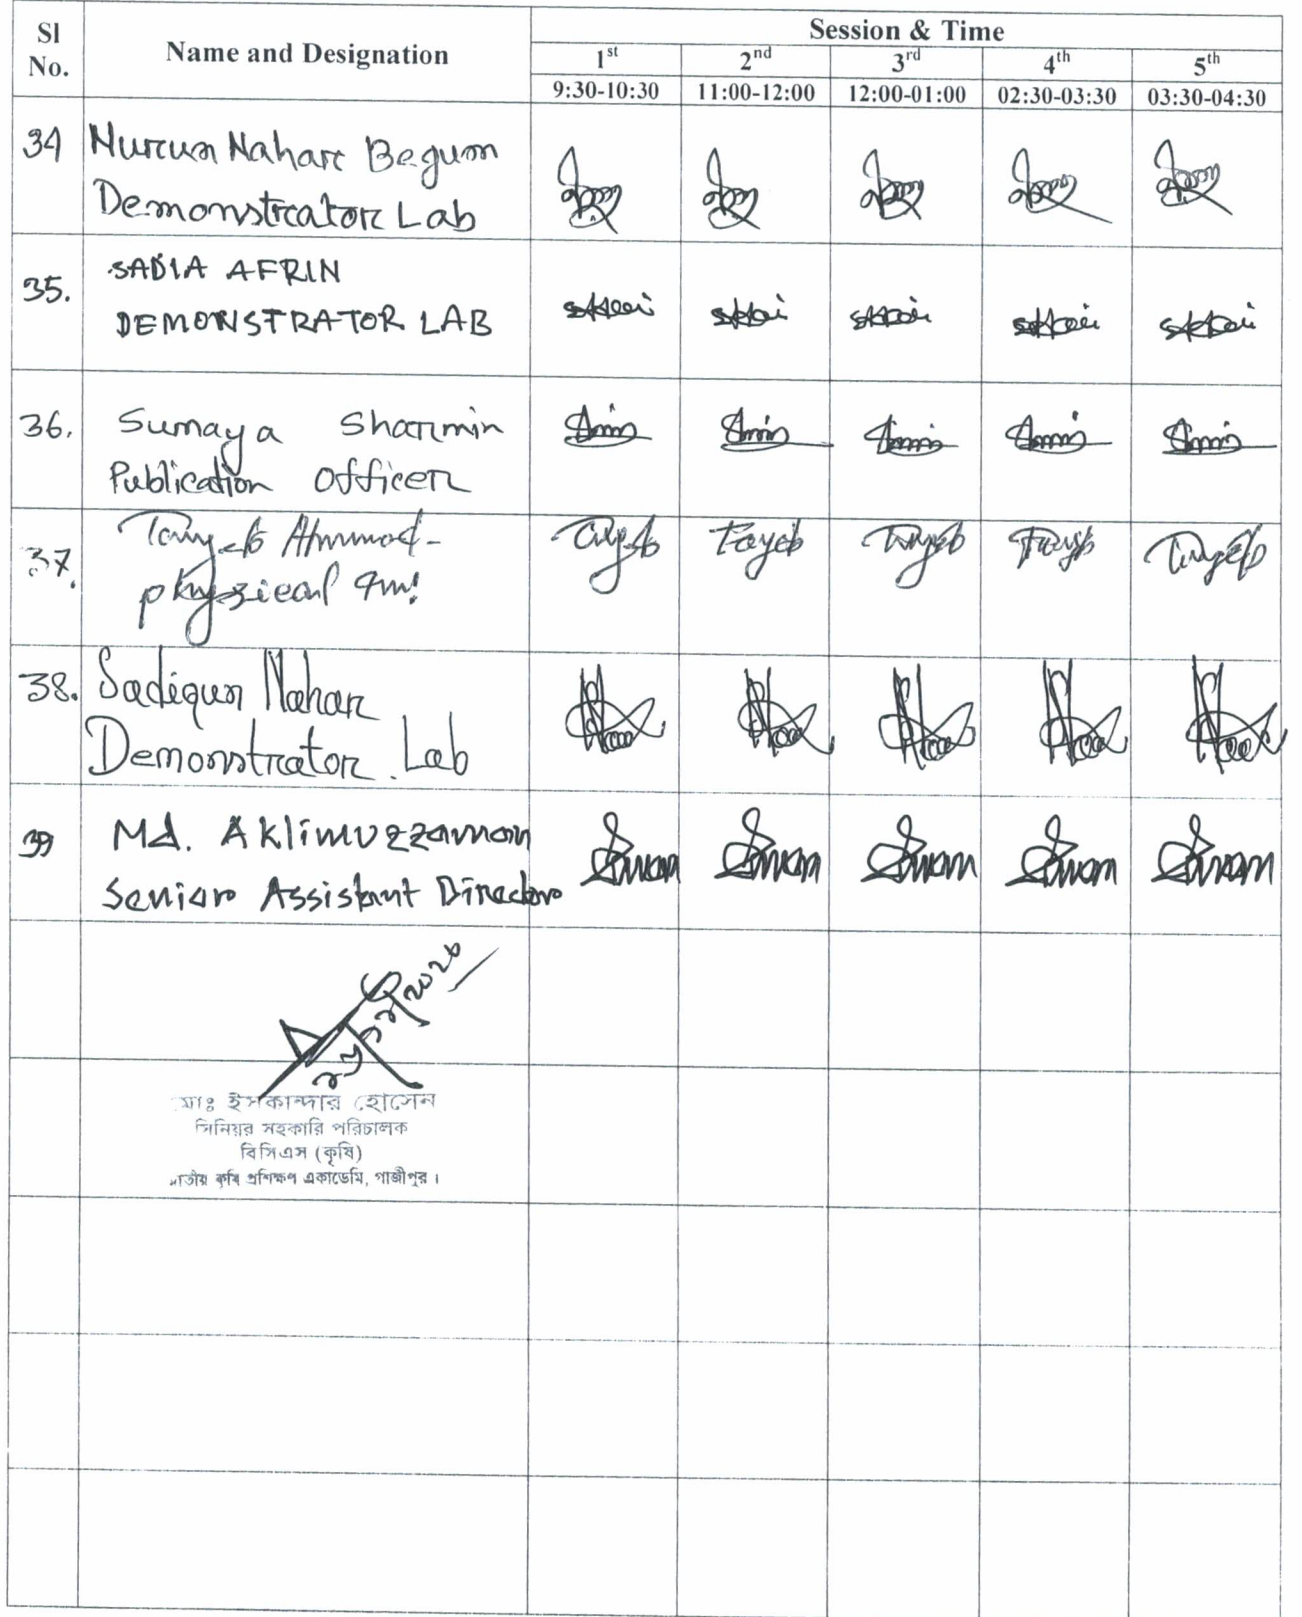 Sl No. Name and Designation Session & Time
1st 2nd 3rd 4th 5th
9:30-10:30 11:00-12:00 12:00-01:00 02:30-03:30 03:30-04:30
34 Nurun Nahar Begum
Demonstrator Lab
35. SADIA AFRIN
DEMONSTRATOR LAB
36. Sumaya Sharmin
Publication Officer
37. Tayeb Ahmmad
physical
Tayeb Tayeb Tayeb Tayeb
38. Sadiqun Nahar
Demonstrator Lab
39 Md. Aklimuzzaman
Senior Assistant Director
মোঃ ইসকান্দার হোসেন
সিনিয়র সহকারি পরিচালক
বিসিএস (কৃষি)
জাতীয় কৃষি প্রশিক্ষণ একাডেমি, গাজীপুর।